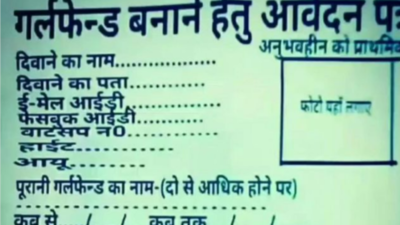 गर्लफेन्ड बनाने हेतु आवेदन पत्र
अनुभवहीन को प्राथमिक
दिवाने का नाम....................
दिवाने का पता.................
ई-मेल आईडी................
फेसबुक आईडी...............
वाटसप न0................
हाईट................
आयू................
फोटो यहाँ लगाए
पूरानी गर्लफेन्ड का नाम-(दो से आधिक होने पर)
कब से ..../..../.... कब तक..../..../....